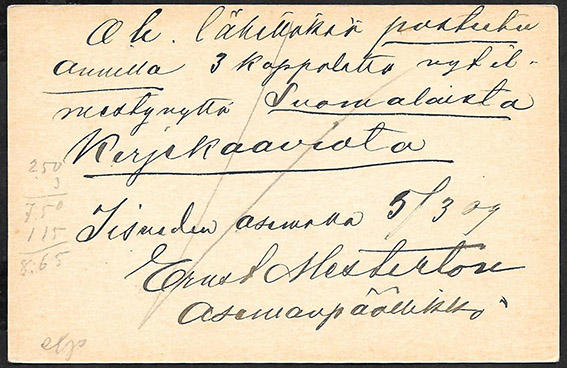 Oh. lähettäkää postietu
annilla 3 kappaletta nyt il-
mestynyttä Suomalaista
Kirjekaaviota
Iisveden asemalla 5/3 09
Ernst Mesterton
Asemanpäällikkö
250
3
7.50
1.15
8.65